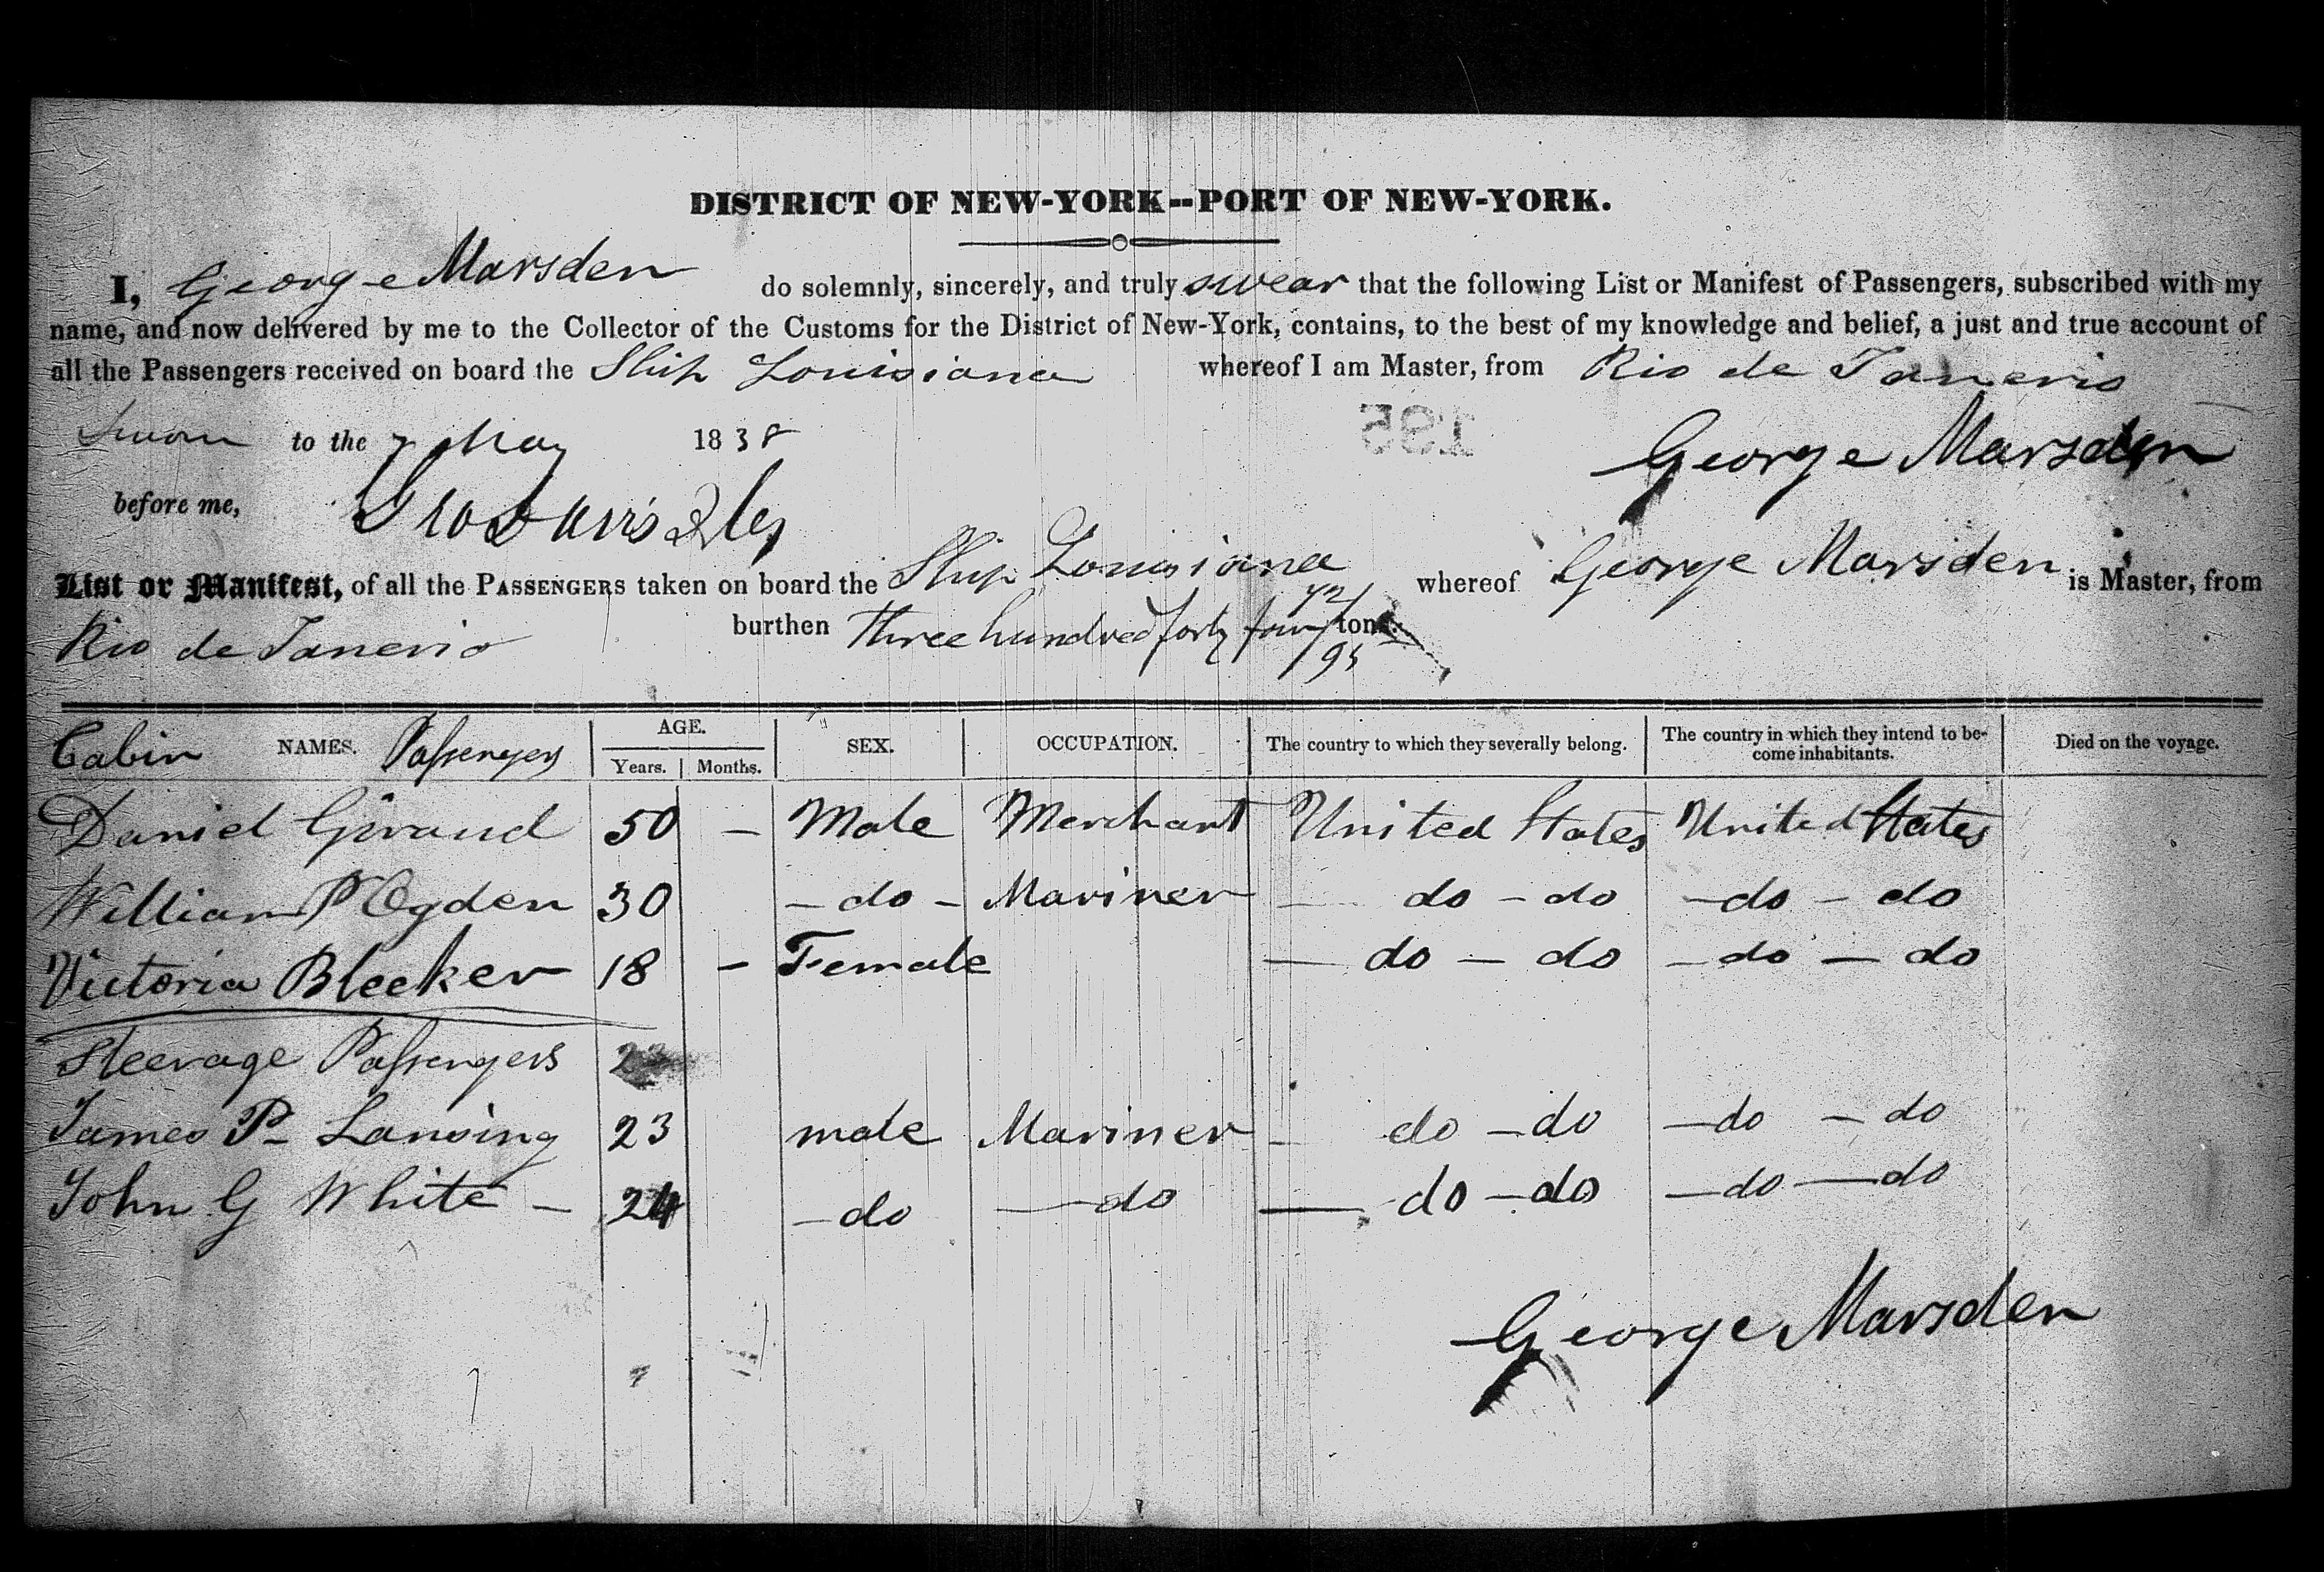 DISTRICT OF NEW-YORK--PORT OF NEW-YORK.
I, George Marsden do solemnly, sincerely, and truly swear that the following List or Manifest of Passengers, subscribed with my
name, and now delivered by me to the Collector of the Customs for the District of New-York, contains, to the best of my knowledge and belief, a just and true account of
all the Passengers received on board the Ship Louisiana whereof I am Master, from Rio de Janerio
Sworn to the 7 May 1838
195
George Marsden
before me,
List or Manifest, of all the PASSENGERS taken on board the Ship Louisiana whereof George Marsden is Master, from
Rio de Janerio burthen three hundred forty four 42/95 tons.
Cabin NAMES. Passengers AGE. Years. Months. SEX. OCCUPATION. The country to which they severally belong. The country in which they intend to be-come inhabitants. Died on the voyage.
Daniel Giraud 50 – Male Merchant United States United States
William P Ogden 30 – do – Mariner – do – do – do – do
Victoria Bleeker 18 – Female – do – do – do – do
Steerage Passengers
James P– Lansing 23 male Mariner – do – do – do – do
John G White – 24 – do – do – do – do – do – do
George Marsden